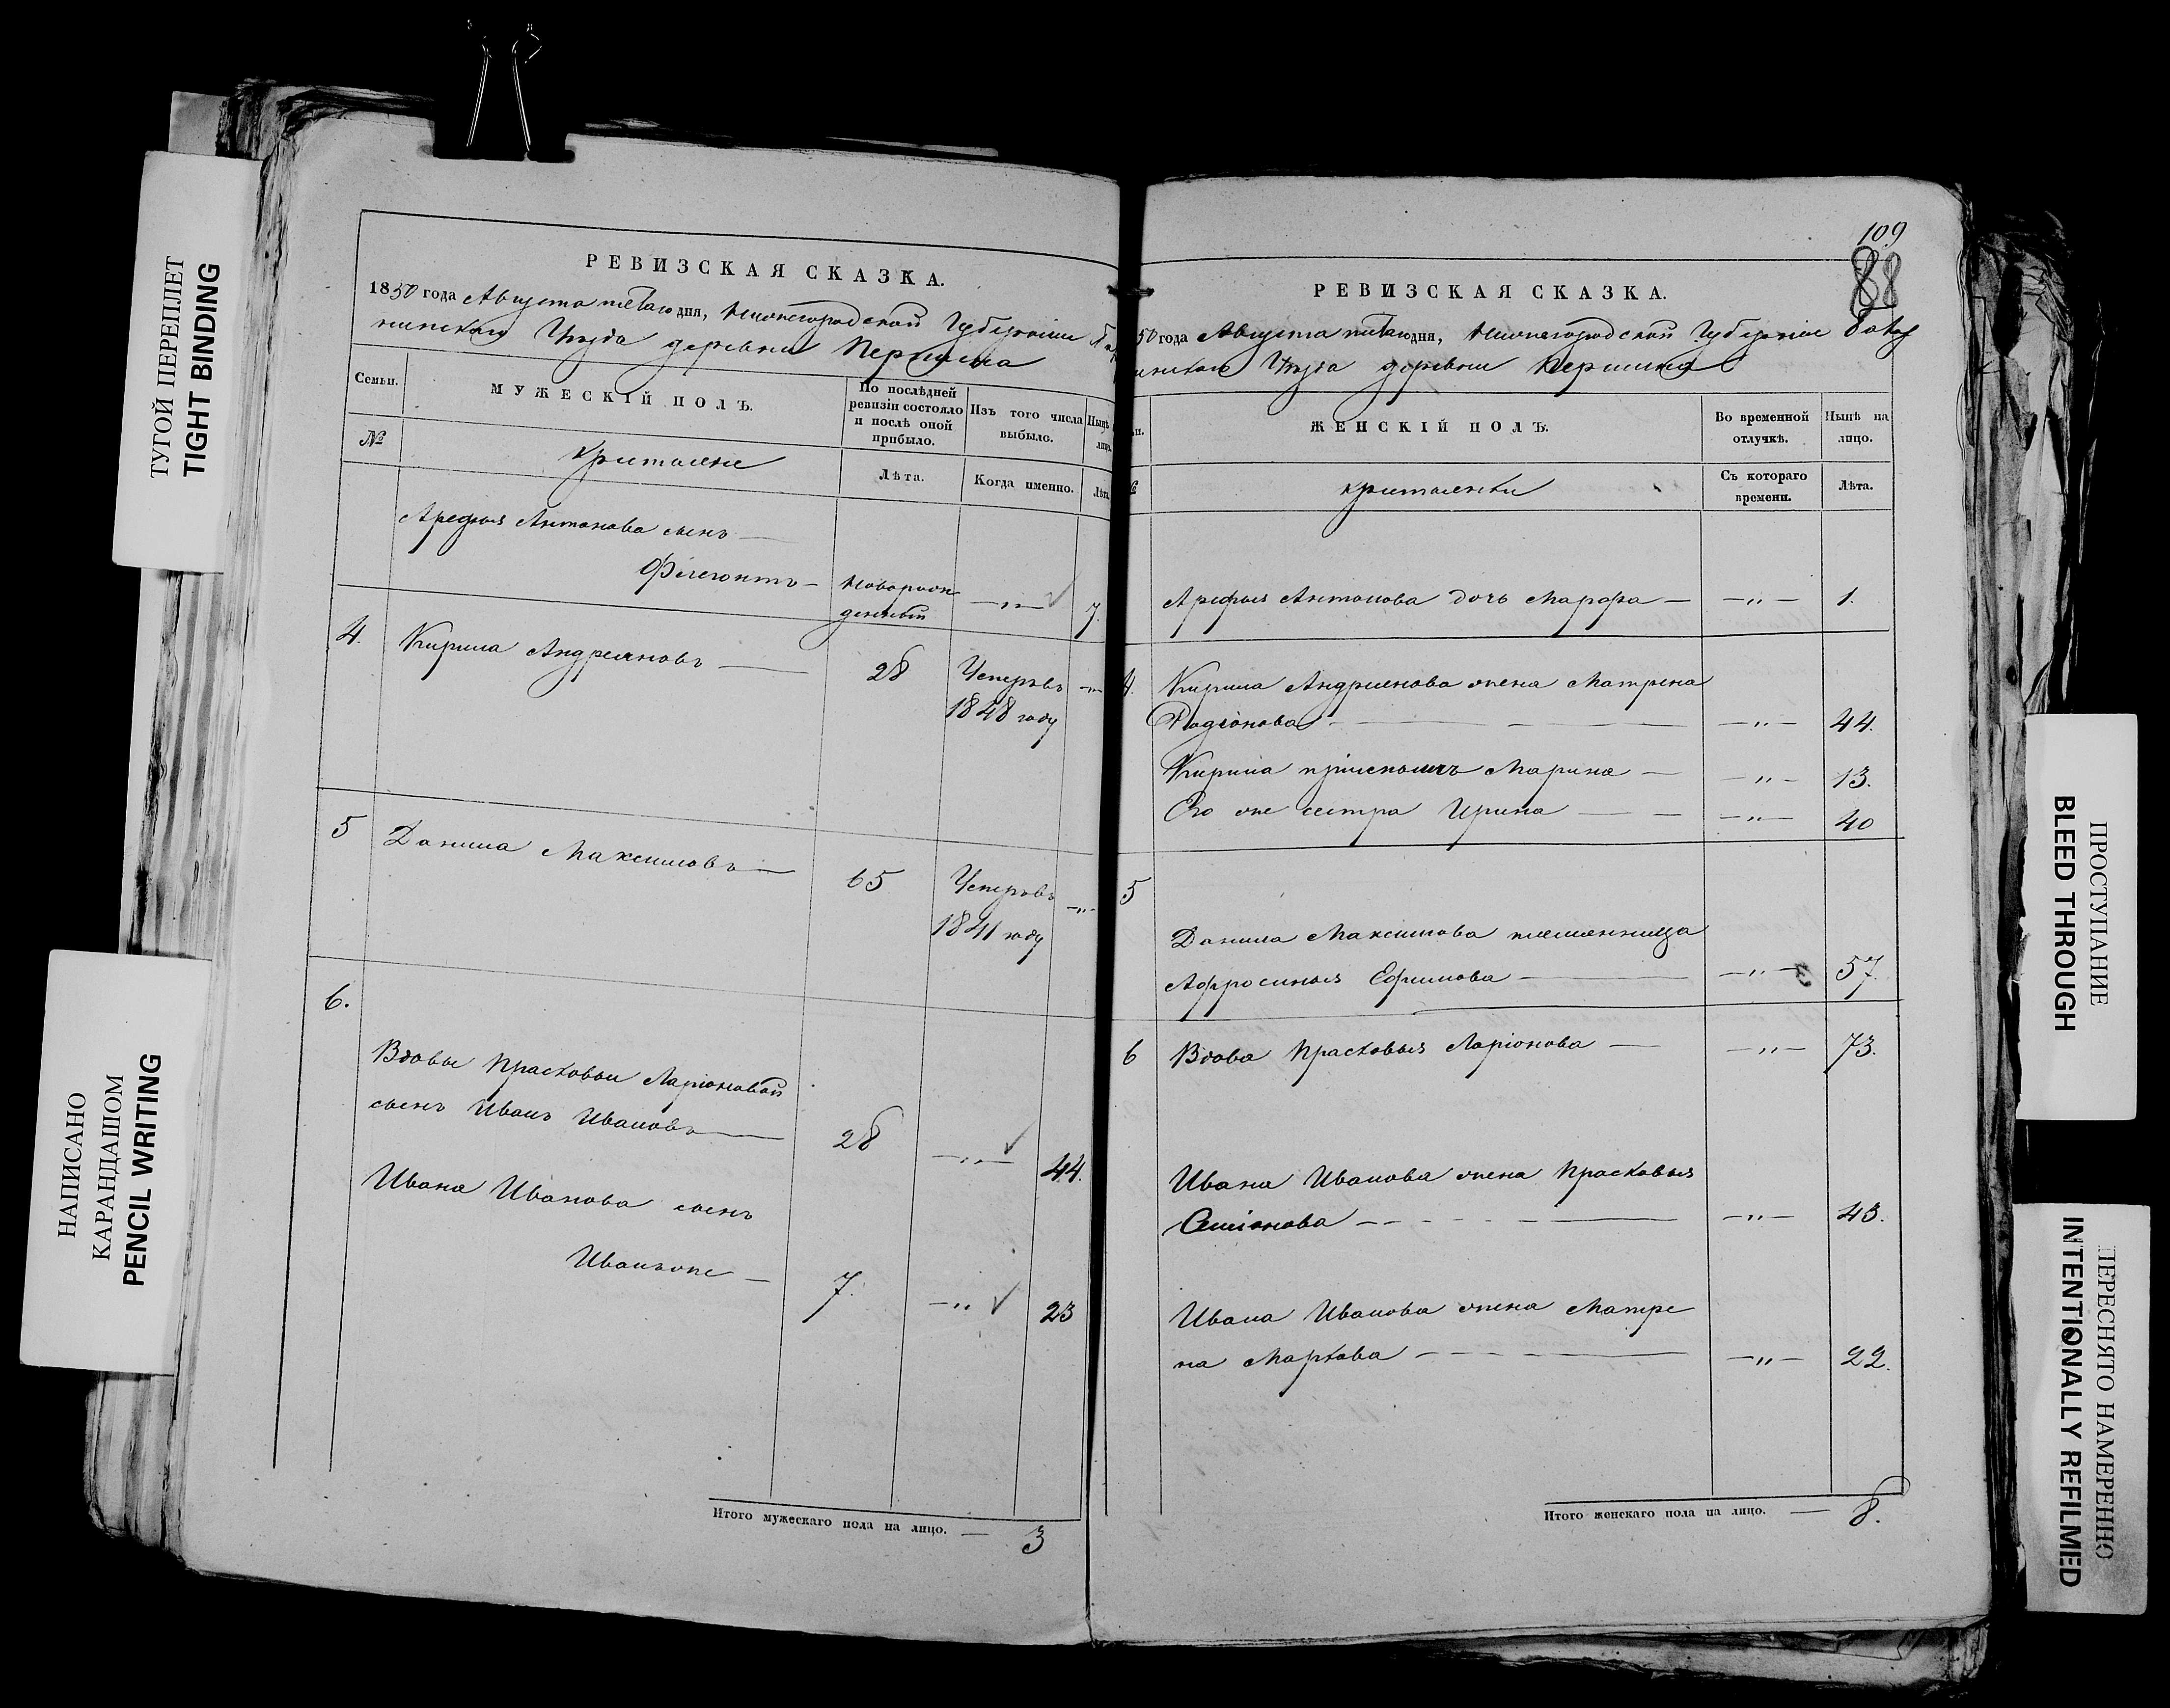 ТУГОЙ ПЕРЕПЛЕТ
TIGHT BINDING
НАПИСАНО
КАРАНДАШОМ
PENCIL WRITING
РЕВИЗСКАЯ СКАЗКА.
1850 года Августа дня, Нижегородской Губерніи
Уѣзда деревни
Семьи.
МУЖЕСКІЙ ПОЛЪ.
По послѣдней
ревизіи состояло
и послѣ оной
прибыло.
Изъ того числа
выбыло.
Нынѣ
лицо.
№
Лѣта.
Когда именно.
Лѣта
Арефья Антонова сынъ —
Филегонтъ — Новорож
денный — „ — 7.
4. Кирила Андреяновъ — 28 Умеръ
1848 году
5 Данила Максимовъ — 65 Умеръ
1841 году
6.
Вдовы Прасковьи Ларіоновой
сынъ Иванъ Ивановъ — 28 — „ — 44.
Ивана Иванова сынъ
Иванъ же — 7. — „ 23
Итого мужескаго пола на лицо. — 3
109
88
РЕВИЗСКАЯ СКАЗКА.
50 года Августа дня, Нижегородской Губерніи
Уѣзда деревни
ЖЕНСКІЙ ПОЛЪ.
Во временной
отлучкѣ.
Нынѣ на
лицо.
Съ котораго
времени.
Лѣта.
Арефья Антонова дочь Марфа — — „ — 1.
4. Кирила Андреянова жена Матрена
Родіонова — — „ — 44.
Кирила Марина — — „ — 13.
Его же сестра Ирина — — — „ — 40
5
Данила Максимова племянница
Афросинья Ефимова — — „ — 57
6 Вдова Прасковья Ларіонова — — „ — 73.
Ивана Иванова жена Прасковья
Семіонова — — „ — 43.
Ивана Иванова жена Матре
на Маркова — — „ — 22.
Итого женскаго пола на лицо. — 8.
ПРОСТУПАНИЕ
BLEED THROUGH
ПЕРЕСНЯТО НАМЕРЕННО
INTENTIONALLY REFILMED